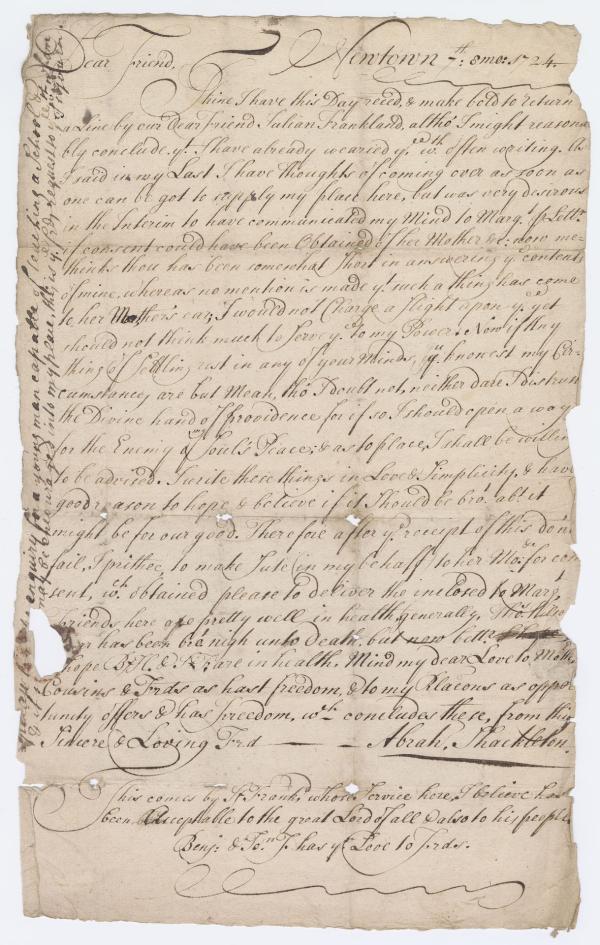 Dear Friend, Newtown 7th: 8mo: 1724
Thine I have this Day recd, & make bold to return
a Line by our Dear friend Julian Frankland, altho' I might reasona
bly conclude yt I have already wearied ye wth often writing. As
I said in my Last I have thoughts of coming over as soon as
one can be got to supply my place here, but was very desirous
in the Interim to have communicated my Mind to Margt p Lettr
if consent could have been Obtained of her Mother &c: now me-
thinks thou has been somewhat short in answering ye contents
of mine, whereas no mention is made yt such a thing has come
to her Mother's ear; I would not Charge a slight upon ye yet
should not think much to serve ye to my Power. Now if Any
thing of Settling rest in any of your Minds, yu knowest my Cir-
cumstances are but Mean, tho' I doubt not, neither dare I distrust
the Divine hand of Providence for if so, I should open a way
for the Enemy of my Soul's Peace; & as to place, I shall be willin
to be advised. I write these things in Love & Simplicity, & have
good reason to hope & believe if it Should be bro: abt it
might be for our good. Therefore after ye receipt of this don't
fail, I prithee, to make Sute (in my behalf) to her Mo: for con
sent, wch obtained please to deliver the inclosed to Margt
Friends here are pretty well in health generally, Tho'
has been bro' nigh unto Death, but now bettr
hope B:H. & are in health. Mind my dear Love to Moth
Cousins & Frds as hast freedom, & to my Relacons as oppor
tunity offers & has freedom, wch concludes these, from thy
Sincere & Loving Frd — — Abrah. Shackleton.
This comes by Jt Frank: whose Service here, I believe has
been Acceptable to the great Lord of all & also to his people
Benj: & has ye Love to Frds.
enquiry for a young man capable of teaching a School
may be encouraged into my place, this is ye request of